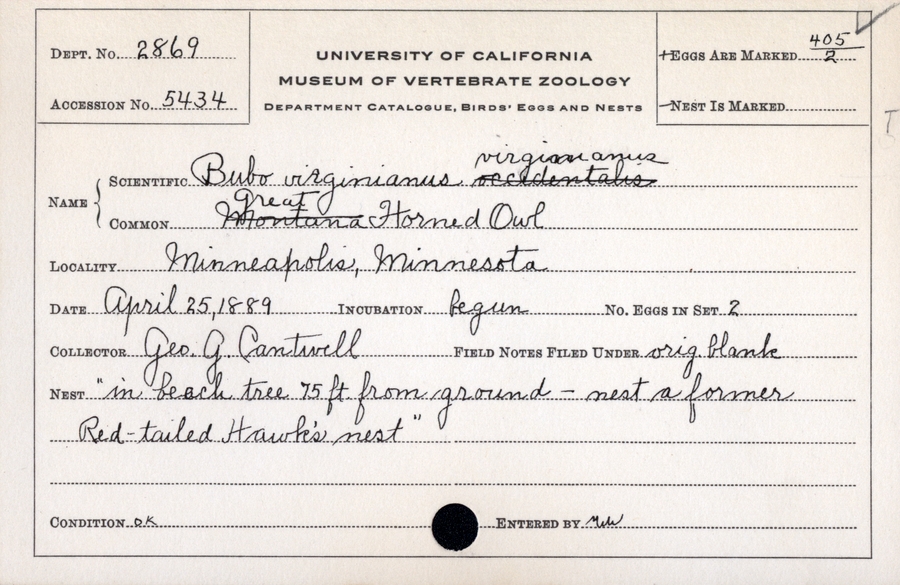 DEPT. No. 2869
UNIVERSITY OF CALIFORNIA
MUSEUM OF VERTEBRATE ZOOLOGY
DEPARTMENT CATALOGUE, BIRDS' EGGS AND NESTS
ACCESSION No. 5434
+EGGS ARE MARKED 405/2
-NEST IS MARKED
virginianus
NAME { SCIENTIFIC Bubo virginianus occidentalis
Great
COMMON Montana Horned Owl
LOCALITY Minneapolis, Minnesota
DATE April 25, 1889 INCUBATION begun No. EGGS IN SET 2
COLLECTOR Geo. G. Cantwell FIELD NOTES FILED UNDER orig. blank
NEST "in beach tree 75 ft from ground – nest a former
Red-tailed Hawk's nest"
CONDITION OK ENTERED BY